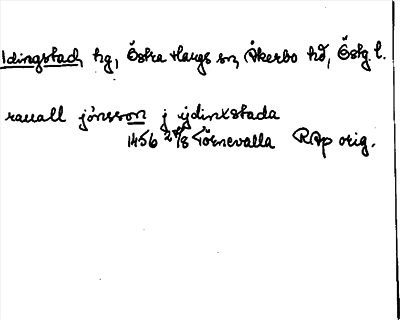 Idingstad, hg, Östra Hargs sn, Åkerbo hd, Östg. l.
rauall jónsson j ydinxstada
1456 24/8 Törnevalla RAp orig.